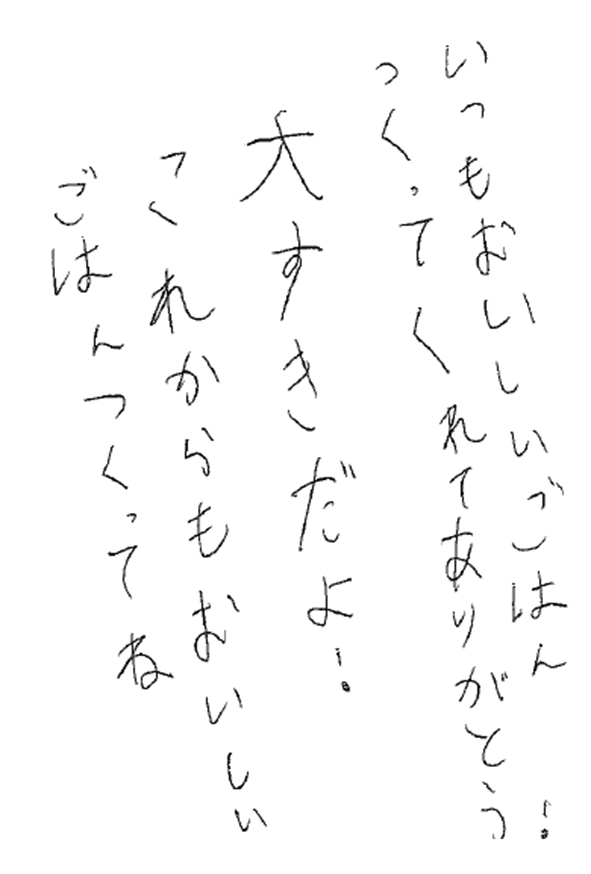 いつもおいしいごはん
つくってくれてありがとう!
大すきだよ!
これからもおいしい
ごはんつくってね